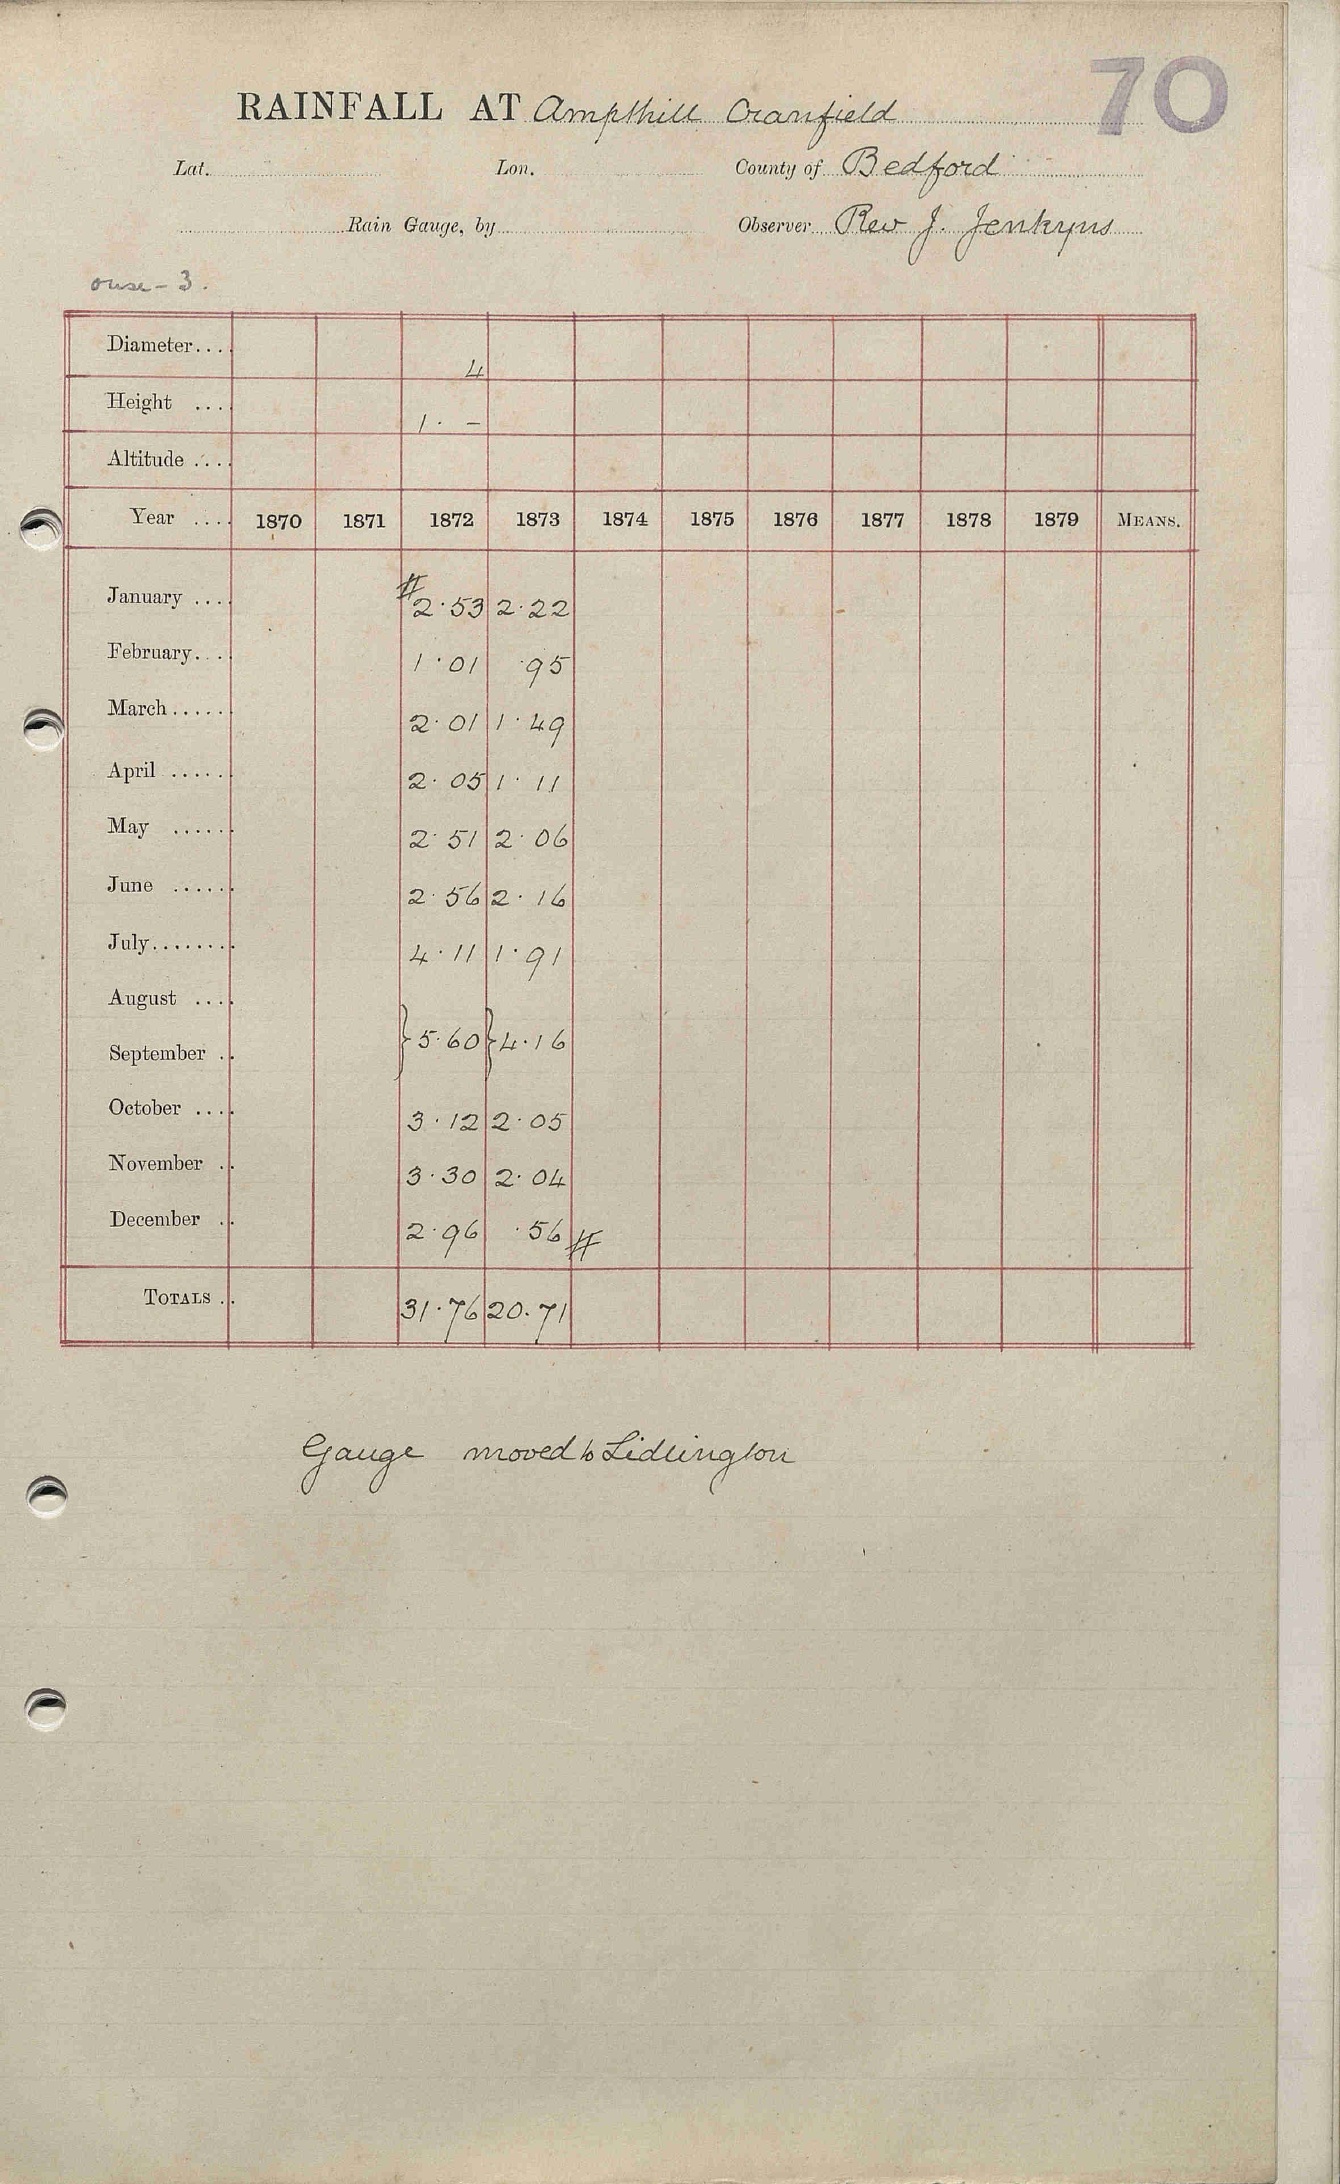 70
RAINFALL AT Ampthill Cranfield
Lat. Lon. County of Bedford
Rain Gauge, by Observer Rev J. Jenkyns
ouse - 3.
Diameter.... 4
Height .... 1. -
Altitude ....
Year .... 1870 1871 1872 1873 1874 1875 1876 1877 1878 1879 MEANS.
January .... # 2.53 2.22
February... 1.01 .95
March..... 2.01 1.49
April ..... 2.05 1.11
May ...... 2.51 2.06
June ...... 2.56 2.16
July........ 4.11 1.91
August ....
} 5.60 } 4.16
September ..
October .... 3.12 2.05
November .. 3.30 2.04
December .. 2.96 .56 #
TOTALS .. 31.76 20.71
Gauge moved to Lidlington